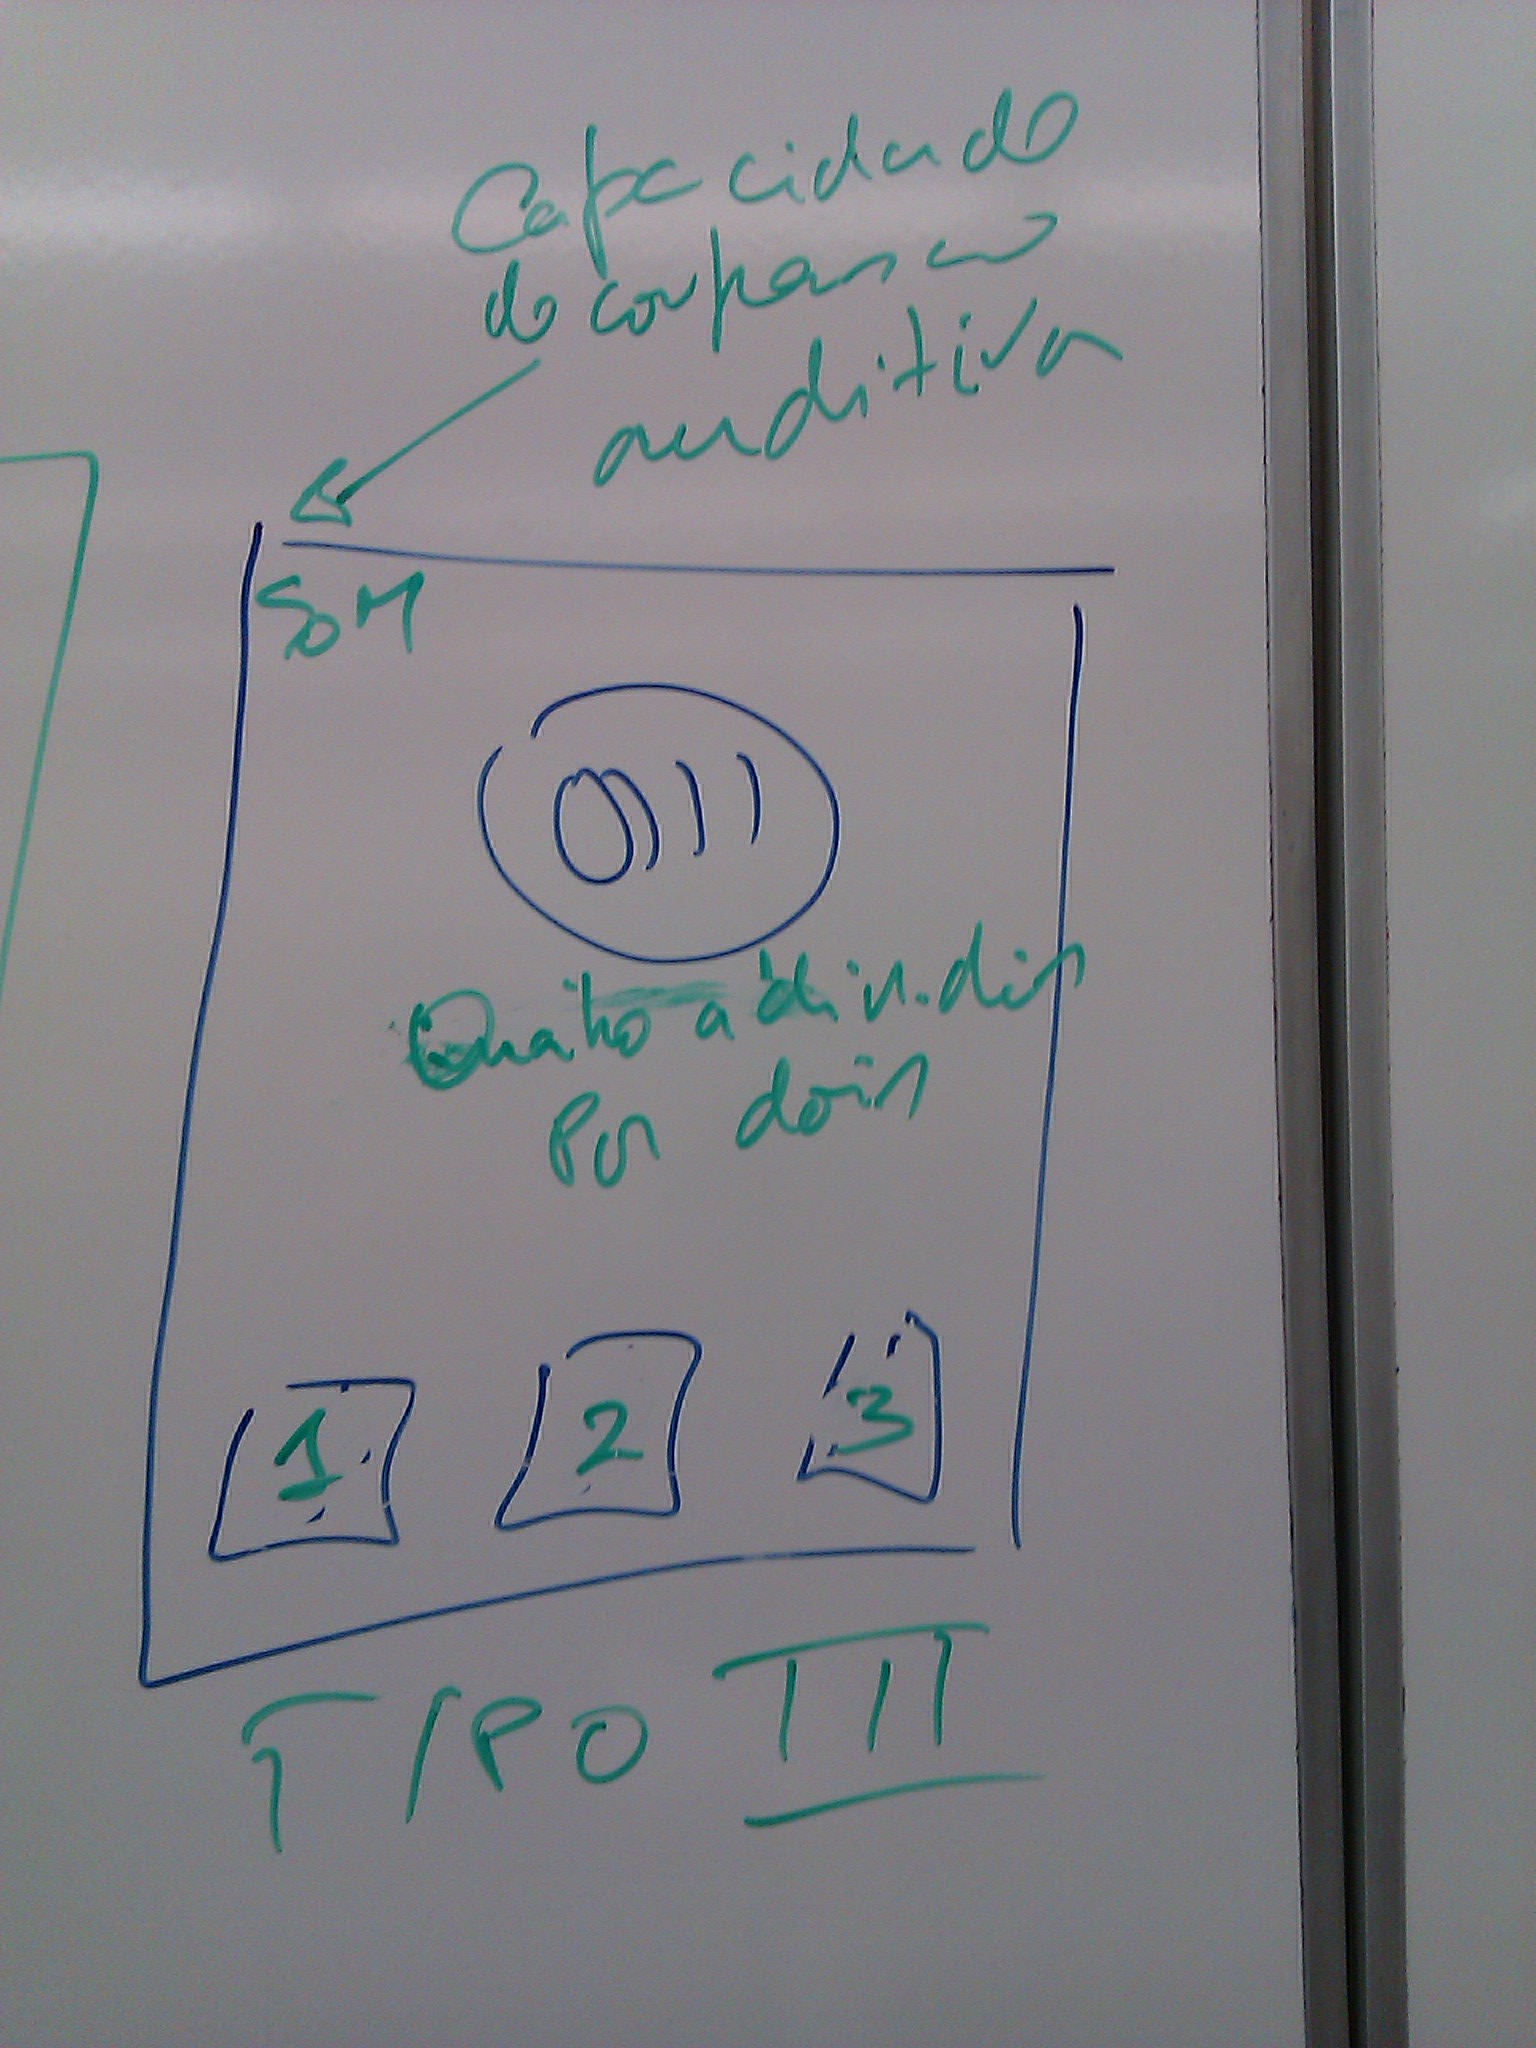 Capacidade
de compensar
auditiva
SOM
Quatro a dividir
Por dois
1 2 3
TIPO III